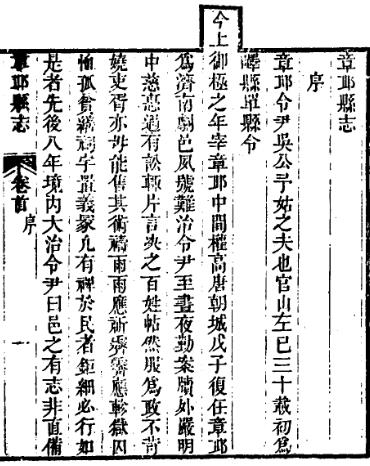 章邱縣志
序
章邱令尹吳公予姑之夫也官山左已三十載初爲
嶧縣單縣令
今上御極之年宰章邱中間權高唐朝城戊子復任章邱
爲濟南劇邑夙號難治令尹至晝夜勤案牘外嚴明
中慈惠遇有訟輒片言决之百姓帖然服爲政不苛
嬈吏胥亦毋能售其術禱雨雨應祈霽霽應軫獄囚
恤孤貧繕祠宇置義冢凡有裨於民者鉅細必行如
是者先後八年境内大治令尹曰邑之有志非直備
章邱縣志
卷首
序
一